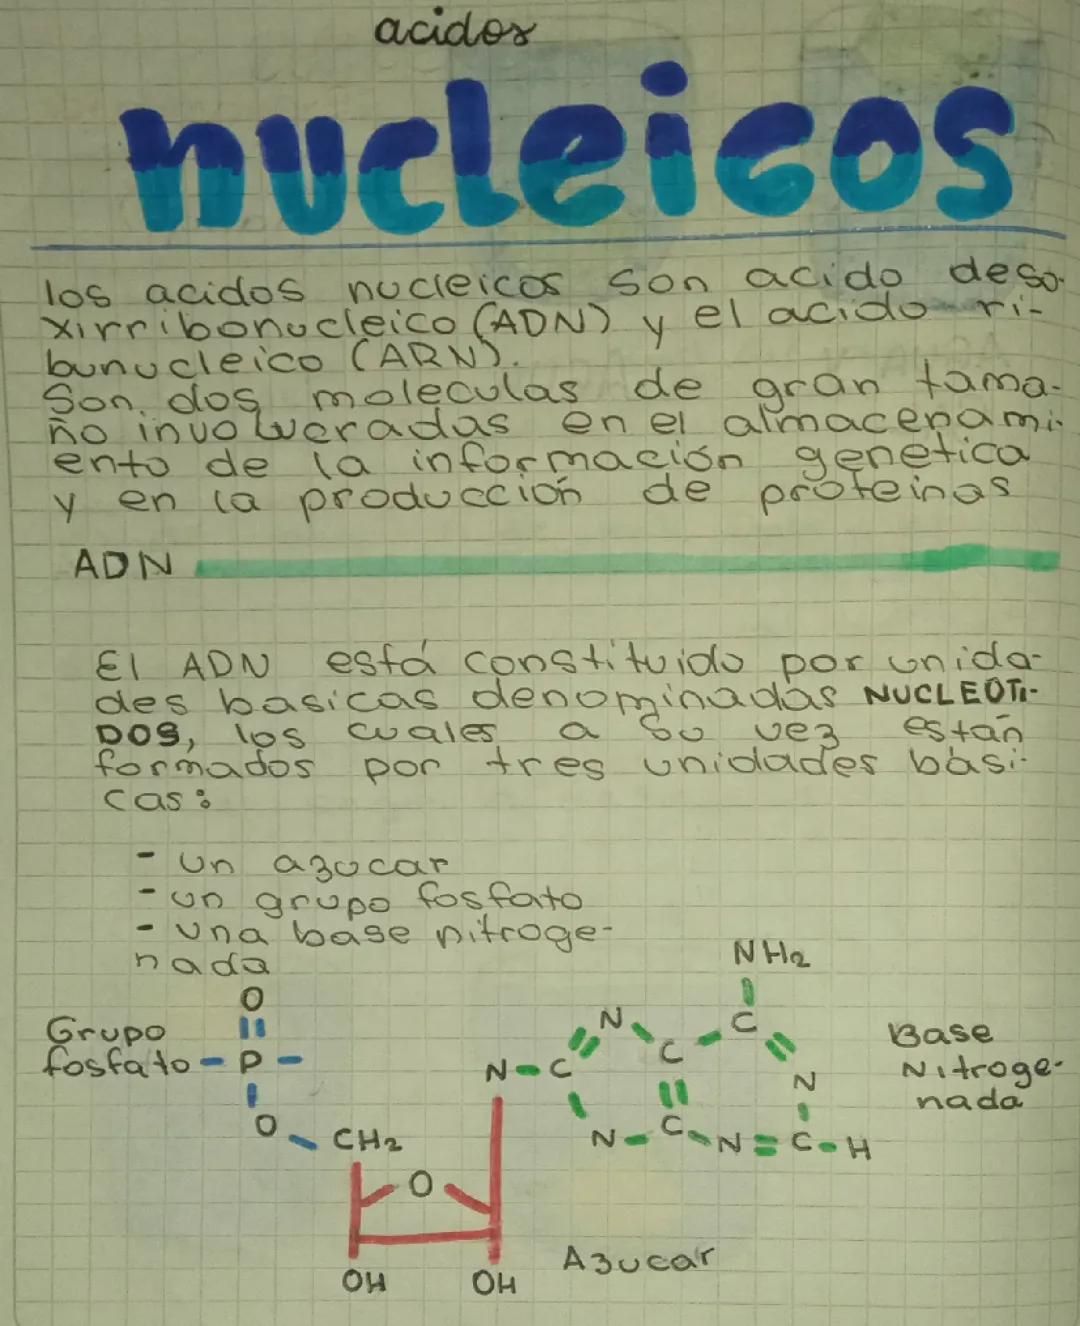 acidos
nucleicos
los acidos nucleicos son acido deso-
xirribonucleico (ADN) y el acido ri-
bunucleico (ARN).
Son dos moleculas de gran tama-
ño involucradas en el almacenami-
ento de la información genetica
y en la producción de proteinas
ADN
El ADN está constituido por unida-
des basicas denominadas NUCLEOTI-
DOS, los cuales a su vez están
formados por tres unidades bási-
cas:
- un azucar
- un grupo fosfato
- una base nitroge-
nada
NH2
O
Grupo
fosfato - P -
N C
N C C
Base
Nitroge-
nada
N
O CH2
N C N C H
O
Azucar
OH OH